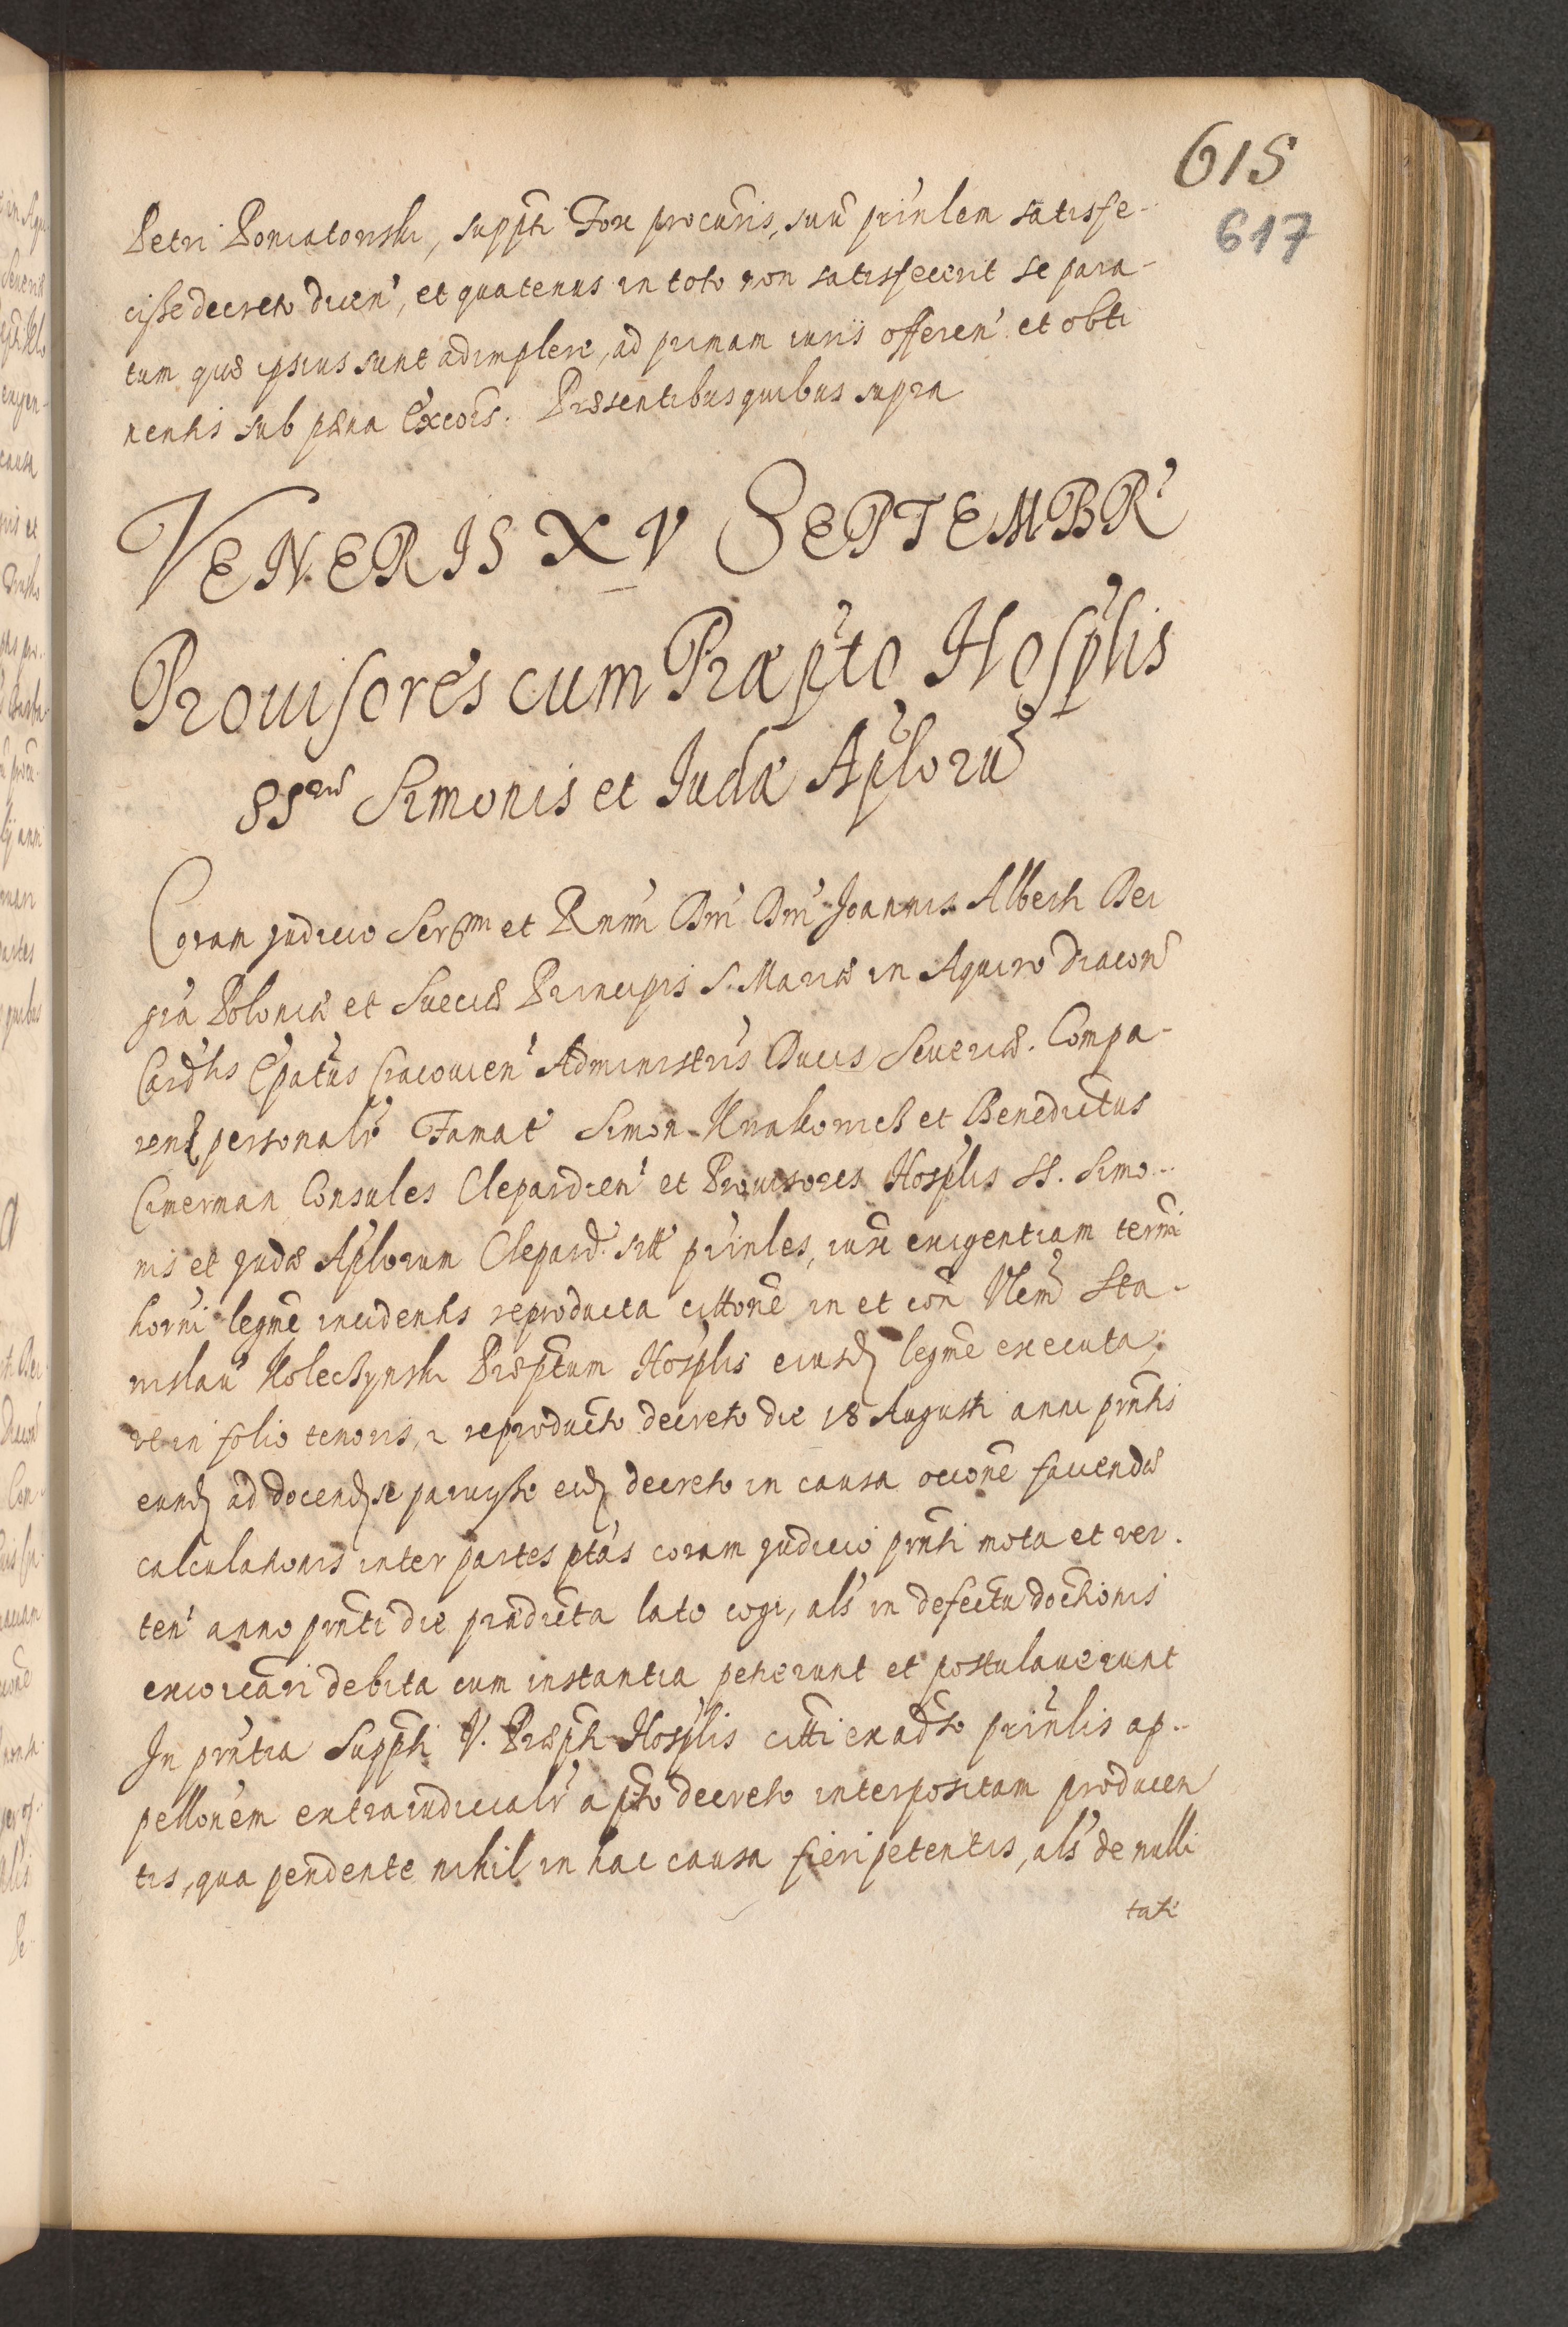 615
617
Petri Poniatowski, suppti Fori procuris, suũ prin'lem satisfe-
cisse decreto dicen', et quatenus in toto non satisfecerit se para-
tum quæ ipsius sunt adimplere, ad primam iuris offeren' et obti
nentis sub pæna Excõis. Præsentibus quibus supra
VENERIS XV SEPTEMBR'
Prouisores cum Præp'to Hosp'lis
SS^rũ Simonis et Iudæ Ap'lorũ
Coram Judicio Ser^mi et R'nmi D'ni D'ni Joannis Alberti Dei
gr'a Poloniæ et Sueciæ Principis S. Mariæ in Aquiro Diacon'
Card'lis Ep'atus Cracouien' Administr'is Ducis Seueriæ. Compa-
ren personalr' Famat' Simon et Benedictus
Cimerman Consules Clepardien' et Prouisores Hosp'lis SS. Simo-
nis et Judæ Ap'lorum Clepard. prin'les, iuxẽ exigentiam termi
horñi legmẽ incidentis reproducta cittonẽ in et con Vlem Sta-
nislaũ Koleczynski Præptum Hosp'lis eiusd legmẽ executa;
ut in folio tenoris, reproducto decreto die 18 Augusti anni prñtis
eund ad docend se paruisse eid decreto in causa occonẽ faciendæ
calculationis inter partes ptas coram Judicio prñti mota et ver.
ten' anno prñti die prædicta lato cogi, als' in defectu doctionis
excoicari debita cum instantia petierunt et postulauerunt
In prñtia Suppti V. Præpti Hosp'lis citti ex adso prin'lis ap-
pellonem extraiudicialr' a pto decreto interpositam producen
tis, qua pendente nihil in hac causa fieri petentis, als' de nulli
tate